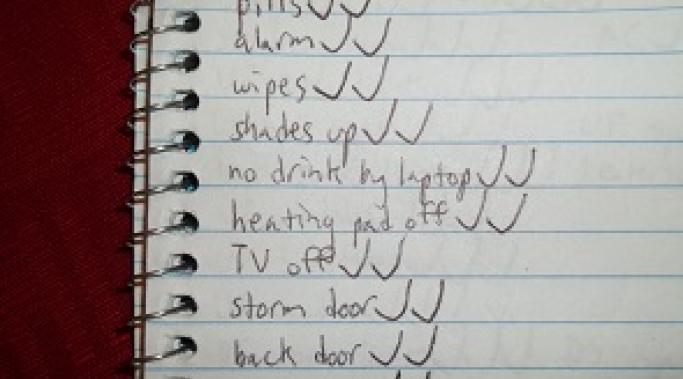 pills ✓✓
alarm ✓✓
wipes ✓✓
shades up ✓✓
no drink by laptop ✓✓
heating pad off ✓✓
TV off ✓✓
storm door ✓✓
back door ✓✓